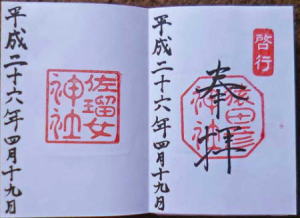 啓行
奉拝
猿田彦神社
平成二十六年四月十九日
佐瑠女神社
平成二十六年四月十九日